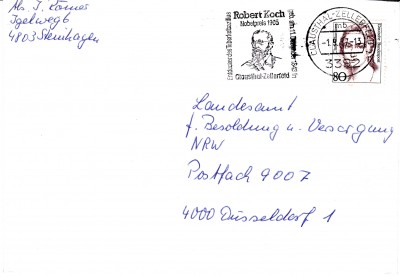 Abs. J. Körner
Igelweg 6
4803 Steinhagen
Robert Koch
Nobelpreis 1905
Clausthal-Zellerfeld
CLAUSTHAL-ZELLERFELD 1
mb
-1.9.87-13
3392
80
Landesamt
f. Besoldung u. Versorgung
NRW
Postfach 9007
4000 Düsseldorf 1